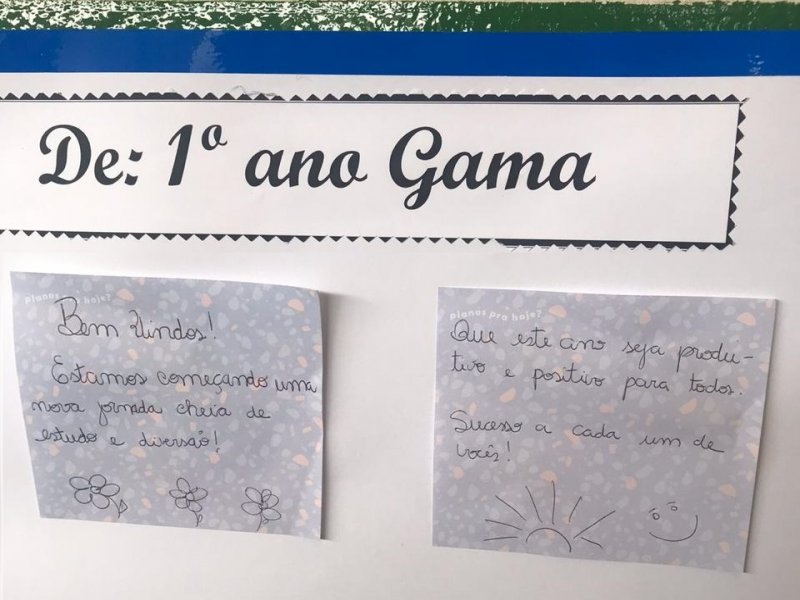 De: 1º ano Gama
planos pra hoje?
Bem Vindos!
Estamos começando uma
nova jornada cheia de
estudo e diversão!
planos pra hoje?
Que este ano seja produ-
tivo e positivo para todos.
Sucesso a cada um de
vocês!